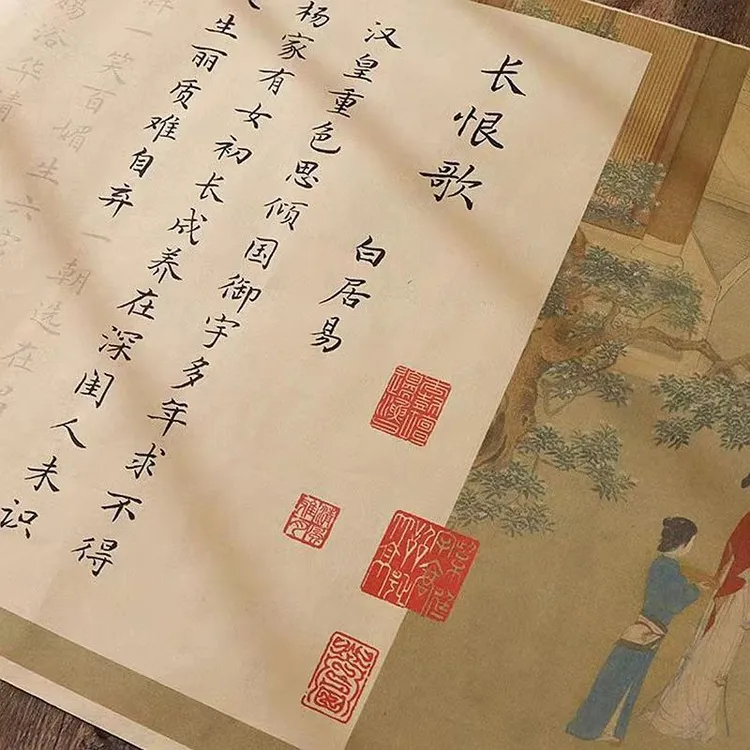 长恨歌
白居易
汉皇重色思倾国御宇多年求不得
杨家有女初长成养在深闺人未识
生丽质难自弃一朝选在
一笑百媚生六宫
赐浴华清